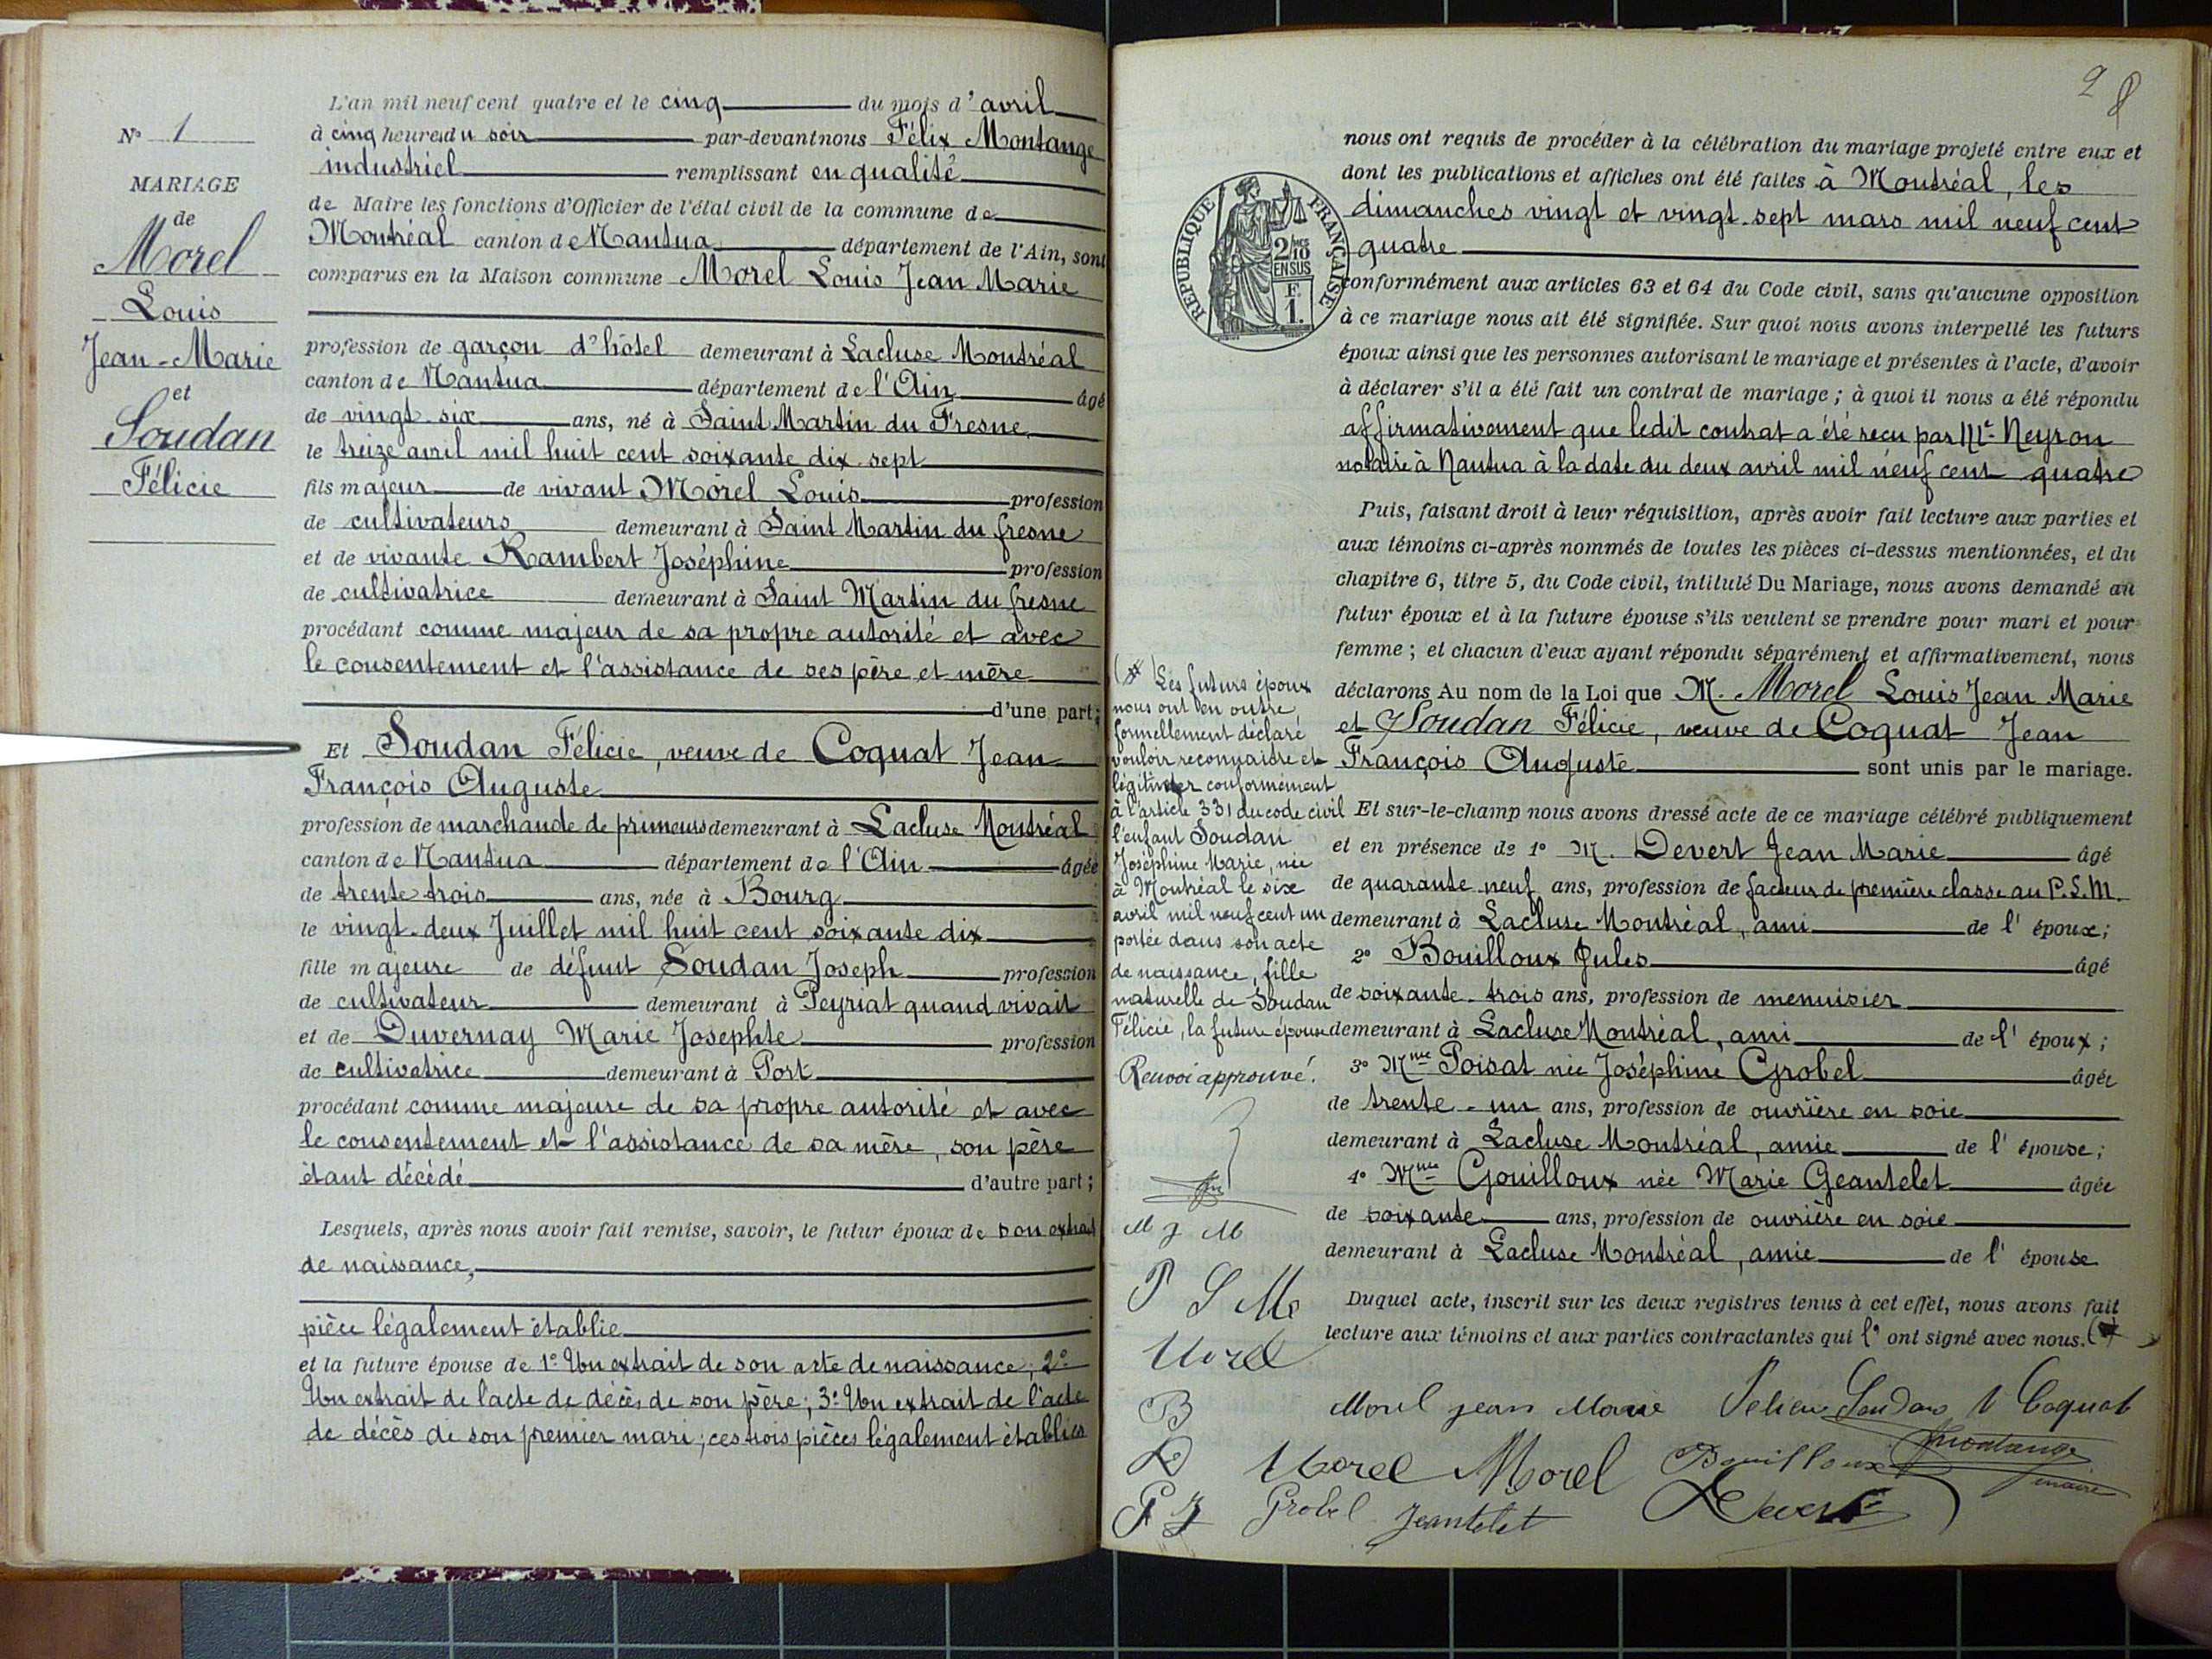 N° 1
MARIAGE
de
Morel
Louis
Jean-Marie
et
Soudan
Félicie
L'an mil neuf cent quatre et le cinq du mois d'avril
à cinq heures du soir par-devant nous Félix Montange
industriel remplissant en qualité
de Maire les fonctions d'Officier de l'état civil de la commune de
Montréal canton de Nantua département de l'Ain, sont
comparus en la Maison commune Morel Louis Jean Marie
profession de garçon d'hôtel demeurant à Lacluse Montréal
canton de Nantua département de l'Ain âgé
de vingt-six ans, né à Saint Martin du Fresne
le treize avril mil huit cent soixante dix-sept
fils majeur de vivant Morel Louis profession
de cultivateurs demeurant à Saint Martin du fresne
et de vivante Rambert Joséphine profession
de cultivatrice demeurant à Saint Martin du fresne
procédant comme majeur de sa propre autorité et avec
le consentement et l'assistance de ses père et mère
d'une part;
Et Soudan Félicie, veuve de Coquat Jean
François Auguste
profession de marchande de primeurs demeurant à Lacluse Montréal
canton de Nantua département de l'Ain âgée
de trente trois ans, née à Bourg
le vingt-deux Juillet mil huit cent soixante dix
fille majeure de défunt Soudan Joseph profession
de cultivateur demeurant à Peyriat quand vivait
et de Duvernay Marie Josephte profession
de cultivatrice demeurant à Port
procédant comme majeure de sa propre autorité et avec
le consentement et l'assistance de sa mère, son père
étant décédé d'autre part;
Lesquels, après nous avoir fait remise, savoir, le futur époux de son extrait
de naissance,
pièce légalement établie
et la future épouse de 1° Un extrait de son acte de naissance; 2°
Un extrait de l'acte de décès de son père; 3° Un extrait de l'acte
de décès de son premier mari; ces trois pièces légalement établies
28
nous ont requis de procéder à la célébration du mariage projeté entre eux et
dont les publications et affiches ont été faites à Montréal, les
dimanches vingt et vingt-sept mars mil neuf cent
quatre
RÉPUBLIQUE FRANÇAISE
2/10
EN SUS
F.
1.
conformément aux articles 63 et 64 du Code civil, sans qu'aucune opposition
à ce mariage nous ait été signifiée. Sur quoi nous avons interpellé les futurs
époux ainsi que les personnes autorisant le mariage et présentes à l'acte, d'avoir
à déclarer s'il a été fait un contrat de mariage; à quoi il nous a été répondu
affirmativement que ledit contrat a été reçu par Me Neyron
notaire à Nantua à la date du deux avril mil neuf cent quatre
Puis, faisant droit à leur réquisition, après avoir fait lecture aux parties et
aux témoins ci-après nommés de toutes les pièces ci-dessus mentionnées, et du
chapitre 6, titre 5, du Code civil, intitulé Du Mariage, nous avons demandé au
futur époux et à la future épouse s'ils veulent se prendre pour mari et pour
femme; et chacun d'eux ayant répondu séparément et affirmativement, nous
déclarons Au nom de la Loi que M. Morel Louis Jean Marie
et Soudan Félicie, veuve de Coquat Jean
François Auguste sont unis par le mariage.
Et sur-le-champ nous avons dressé acte de ce mariage célébré publiquement
et en présence de 1° M. Devert Jean Marie âgé
de quarante neuf ans, profession de facteur de première classe au P.L.M.
demeurant à Lacluse Montréal, ami de l'époux;
2° Bouilloux Jules âgé
de soixante-trois ans, profession de menuisier
demeurant à Lacluse Montréal, ami de l'époux;
3° Mme Poisat née Joséphine Grobel âgée
de trente-un ans, profession de ouvrière en soie
demeurant à Lacluse Montréal, amie de l'épouse;
4° Mme Gouilloux née Marie Geantelet âgée
de soixante ans, profession de ouvrière en soie
demeurant à Lacluse Montréal, amie de l'épouse
Duquel acte, inscrit sur les deux registres tenus à cet effet, nous avons fait
lecture aux témoins et aux parties contractantes qui l'ont signé avec nous.
Les futurs époux
nous ont en outre
formellement déclaré
vouloir reconnaître et
légitimer conformément
à l'article 331 du code civil
l'enfant Soudan
Joséphine Marie, née
à Montréal le six
avril mil neuf cent un
portée dans son acte
de naissance, fille
naturelle de Soudan
Félicie, la future épouse
Renvoi approuvé.
M J M
P S Mo
Morel
B
D
G J
Morel jean Marie Félicie Soudan V Coquat
Morel Morel Bouilloux Montange
maire
Grobel Jeantelet Devert